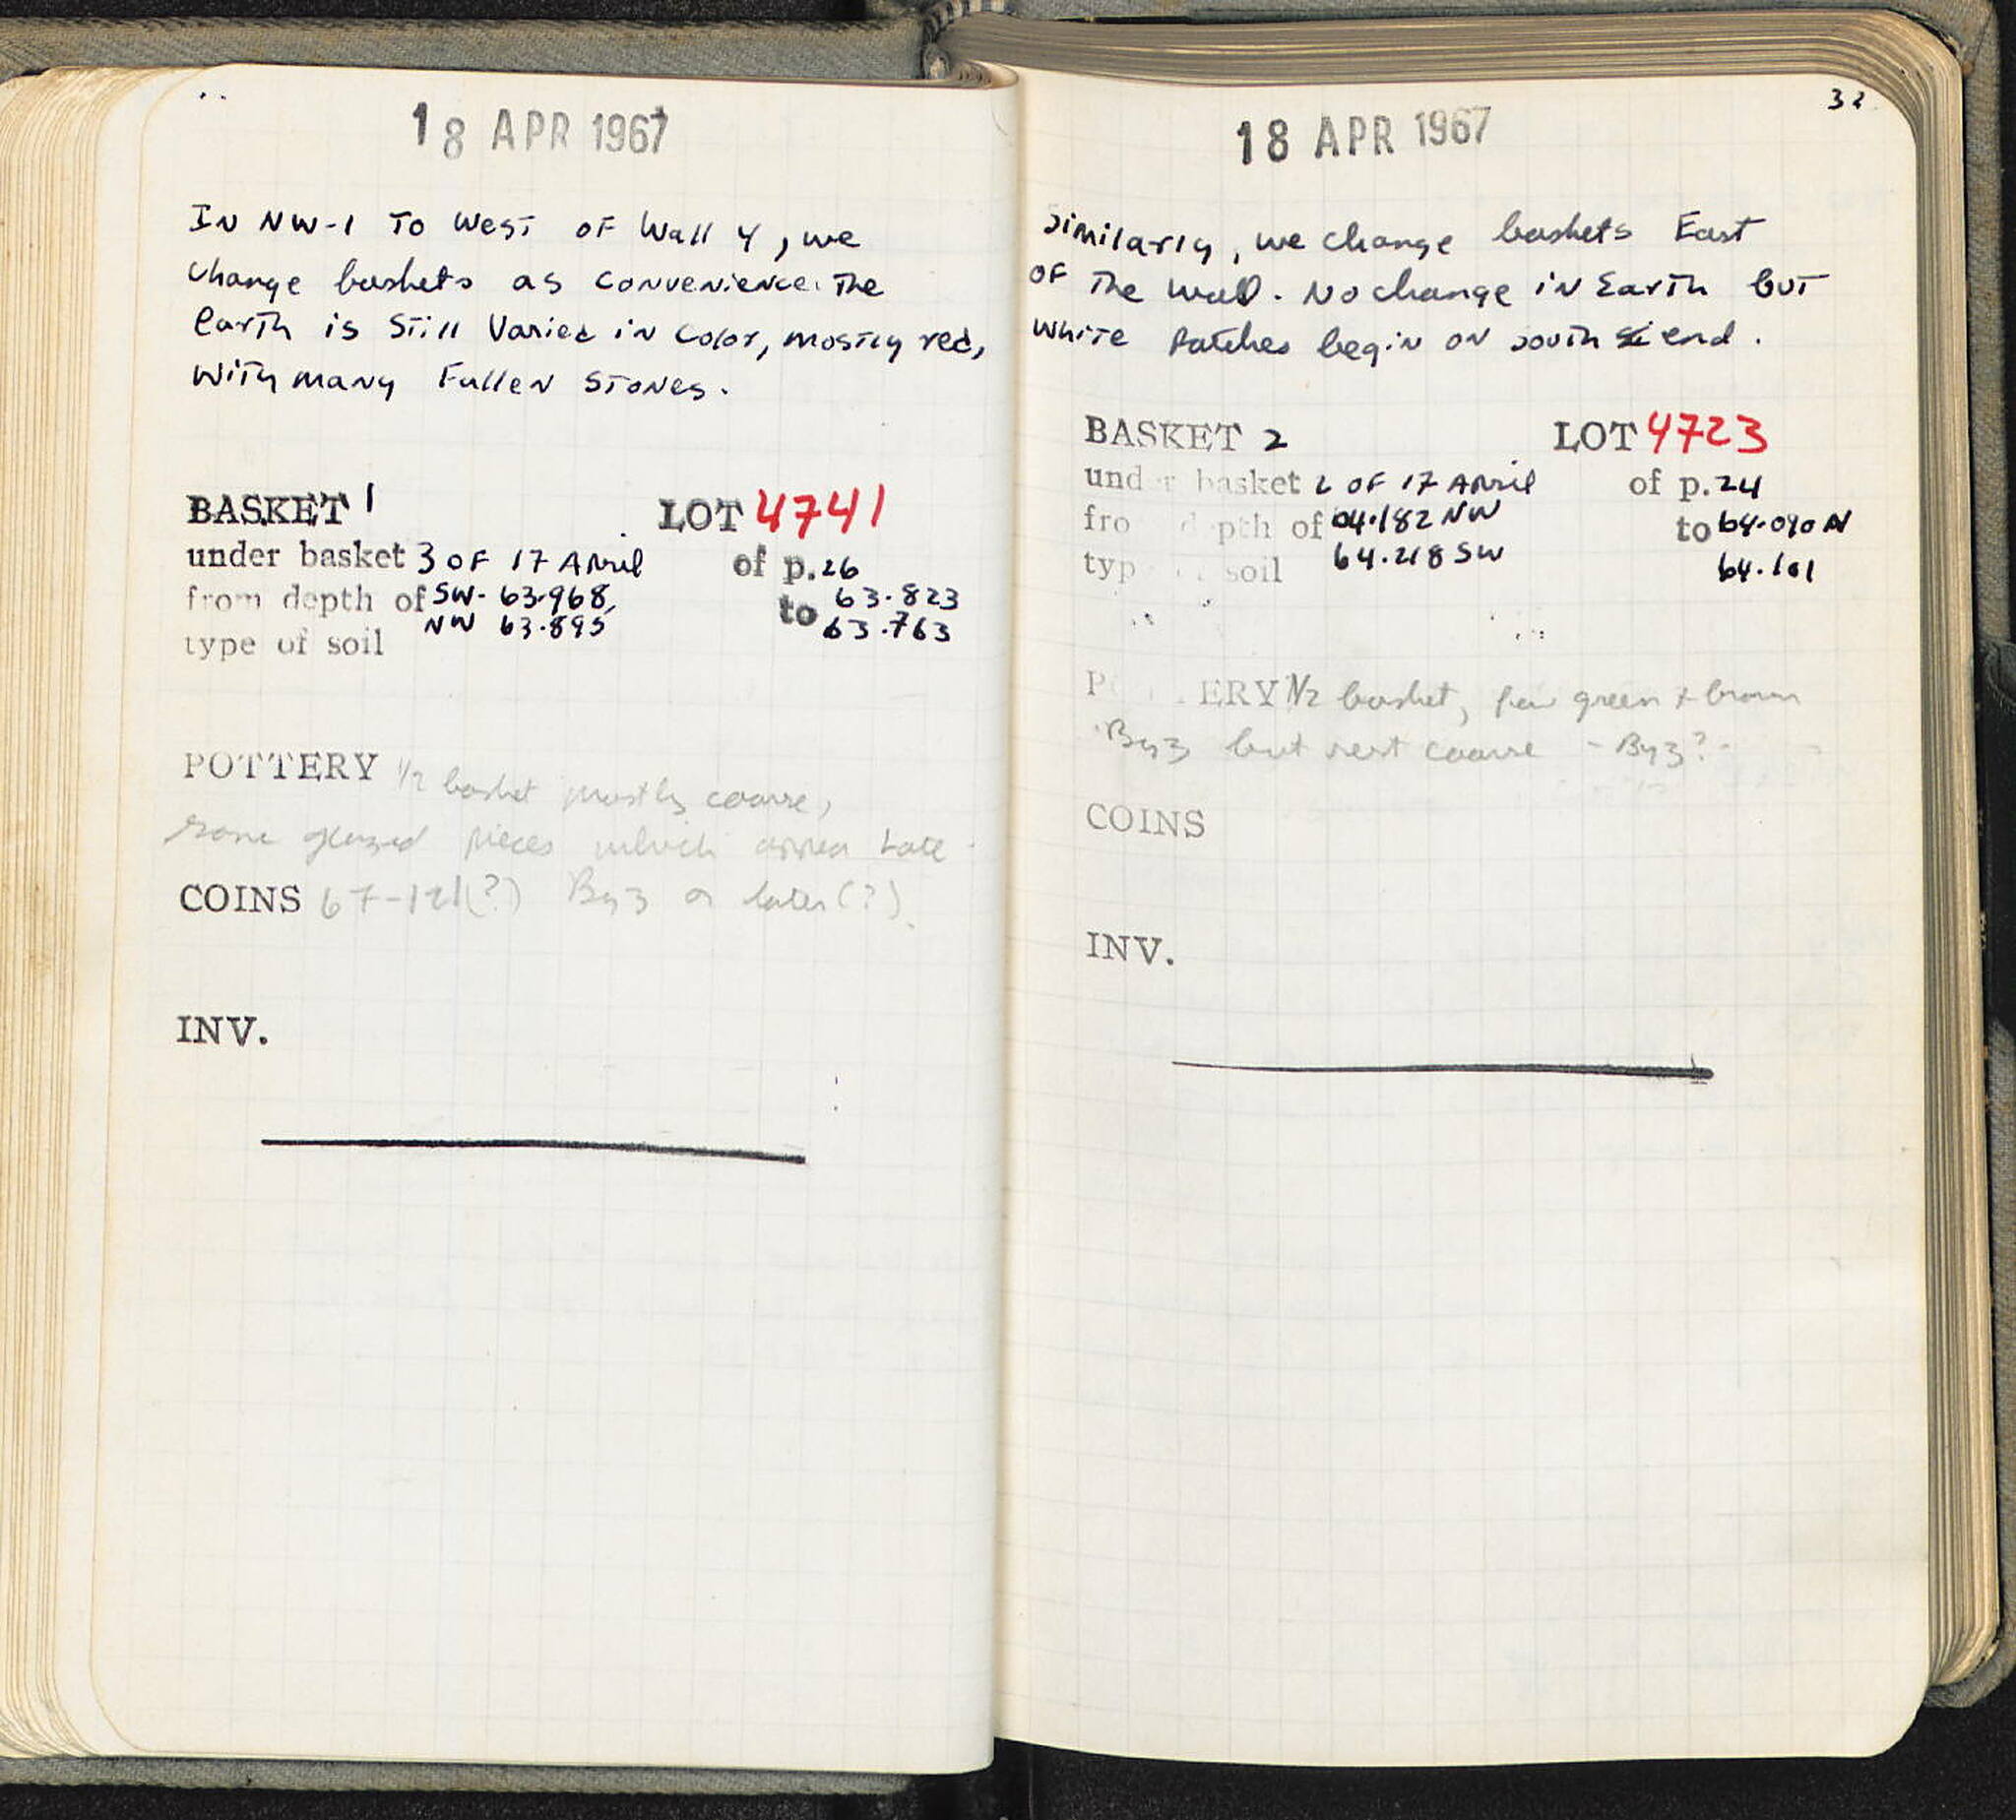 18 APR 1967
In NW-1 to west of Wall 4, we
change baskets as convenience. The
earth is still varied in color, mostly red,
with many fallen stones.
BASKET 1 LOT 4741
under basket 3 OF 17 April of p. 26
from depth of SW- 63.968, to 63.823
NW 63.895 63.763
type of soil
POTTERY 1/2 basket mostly coarse,
some glazed pieces which appear late
COINS 67-121(?) Byz or later(?).
INV.
32
18 APR 1967
Similarly, we change baskets East
of the wall. No change in Earth but
white patches begin on south end.
BASKET 2 LOT 4723
under basket 2 OF 17 April of p. 24
from depth of 64.182 NW to 64.090 N
type of soil 64.218 SW 64.101
POTTERY 1/2 basket, few green + brown
Byz but rest coarse - Byz? -
COINS
INV.